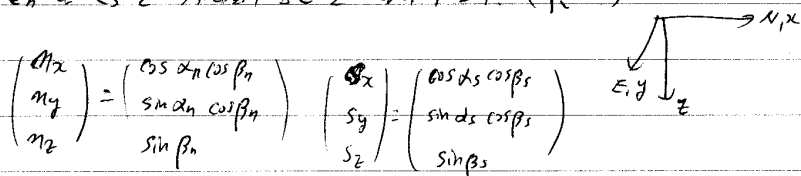 (nx ny nz) = (cos αn cos βn, sin αn cos βn, sin βn)
(sx sy sz) = (cos αs cos βs, sin αs cos βs, sin βs)
N, x
E, y
z